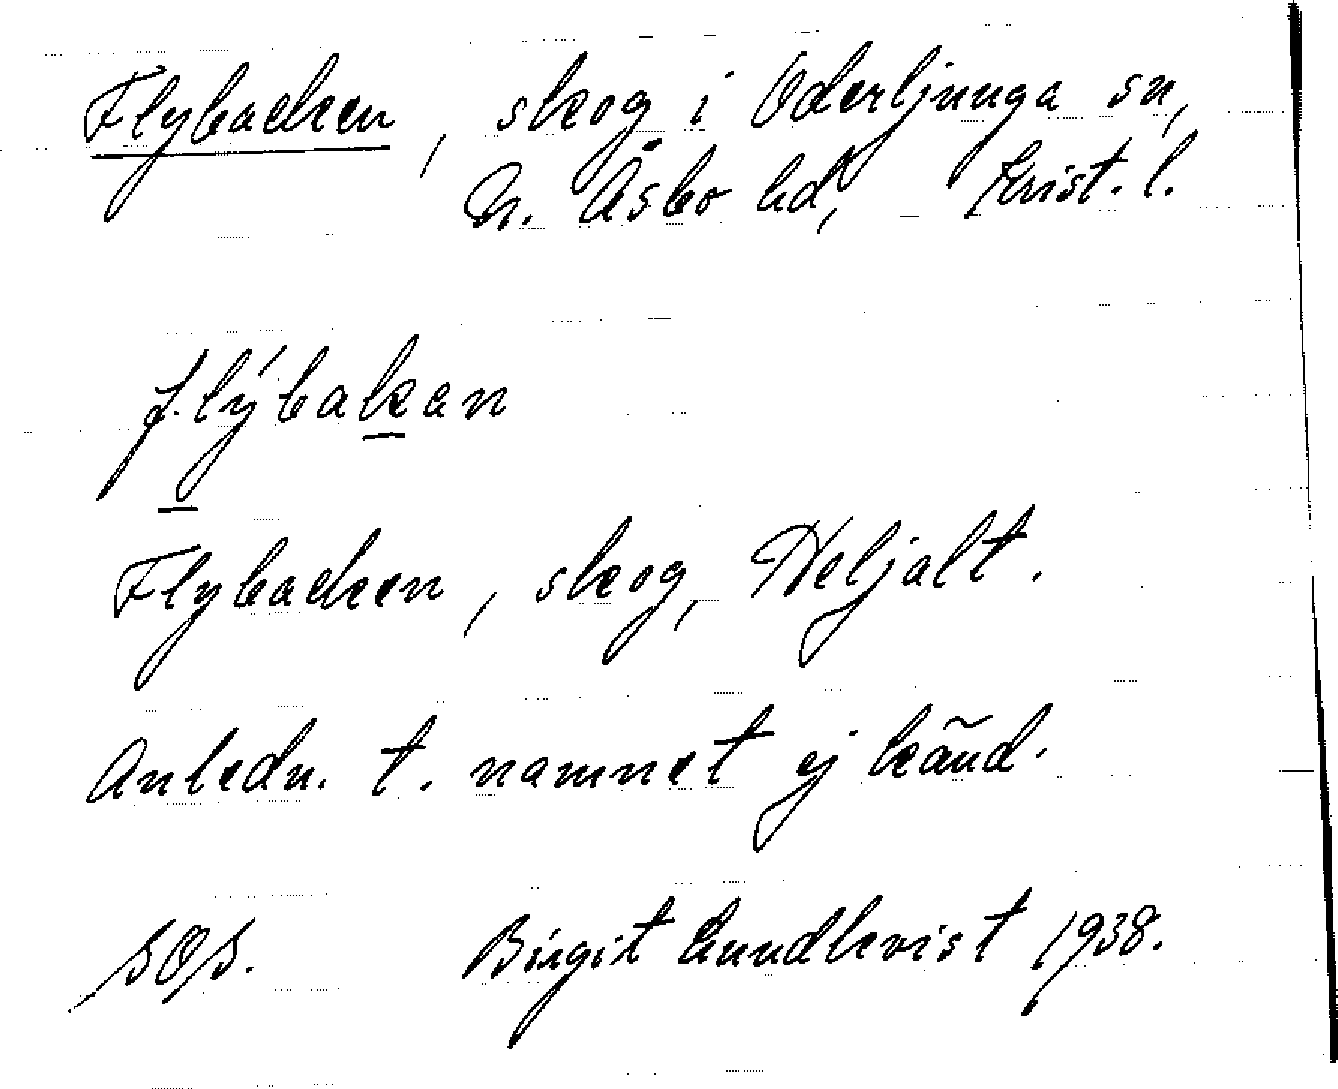 Flybacken, skog i Oderljunga sn,
N. Åsbo hd, Krist. l.
flýbakan
Flybacken, skog, Heljalt.
Anledn. t. namnet ej känd.
SOS. Birgit Lundkvist 1938.